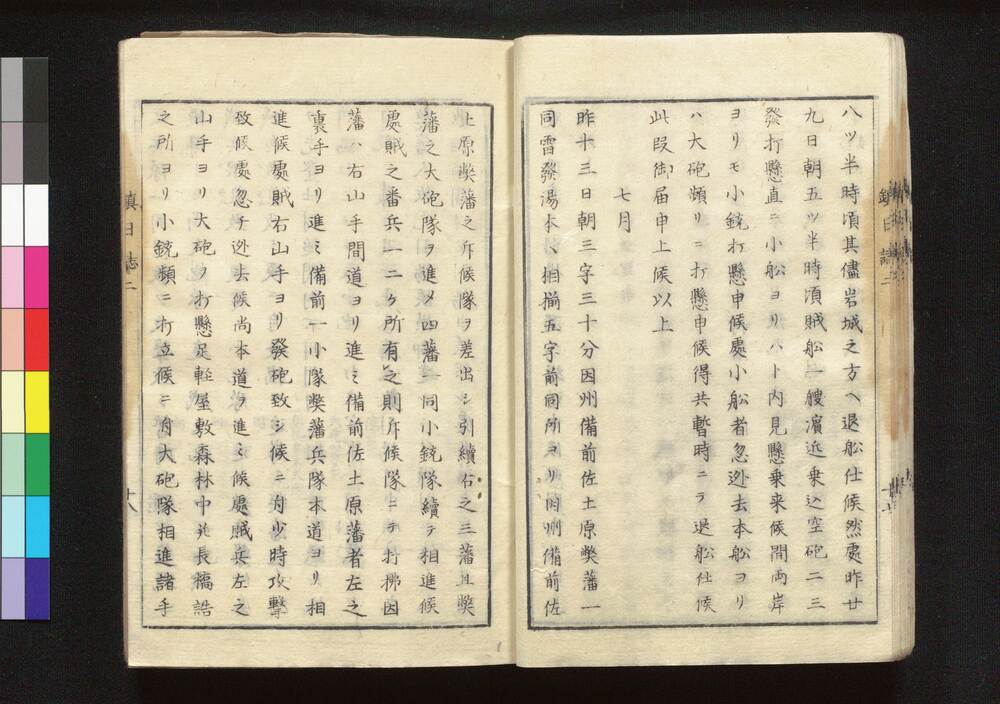 八ツ半時頃其儘岩城之方ヘ退船仕候然處昨廿
九日朝五ツ半時頃賊船一艘濱近乗込空砲二三
發打懸直ニ小船ヨリハト内見懸乗来候間両岸
ヨリモ小銃打懸申候處小船者忽迯去本船ヨリ
ハ大砲頻リニ打懸申候得共暫時ニテ退船仕候
此段御届申上候以上
七月
昨十三日朝三字三十分因州備前佐土原弊藩一
同雷發湯本ヘ相揃五字前同所ヨリ因州備前佐
土原弊藩之斥候隊ヲ差出シ引續右之三藩且弊
藩之大砲隊ヲ進メ四藩一同小銃隊續テ相進候
處賊之番兵一二ケ所有之則斥候隊ニテ打拂因
藩ハ右山手間道ヨリ進ミ備前佐土原藩者左之
裏手ヨリ進ミ備前一小隊弊藩兵隊本道ヨリ相
進候處賊右山手ヨリ發砲致シ候ニ付少時攻撃
致候處忽チ迯去候尚本道ヲ進ミ候處賊兵左之
山手ヨリ大砲ヲ打懸足軽屋敷森林中并長橋詰
之所ヨリ小銃頻ニ打立候ニ付大砲隊相進諸手
日志二
十八